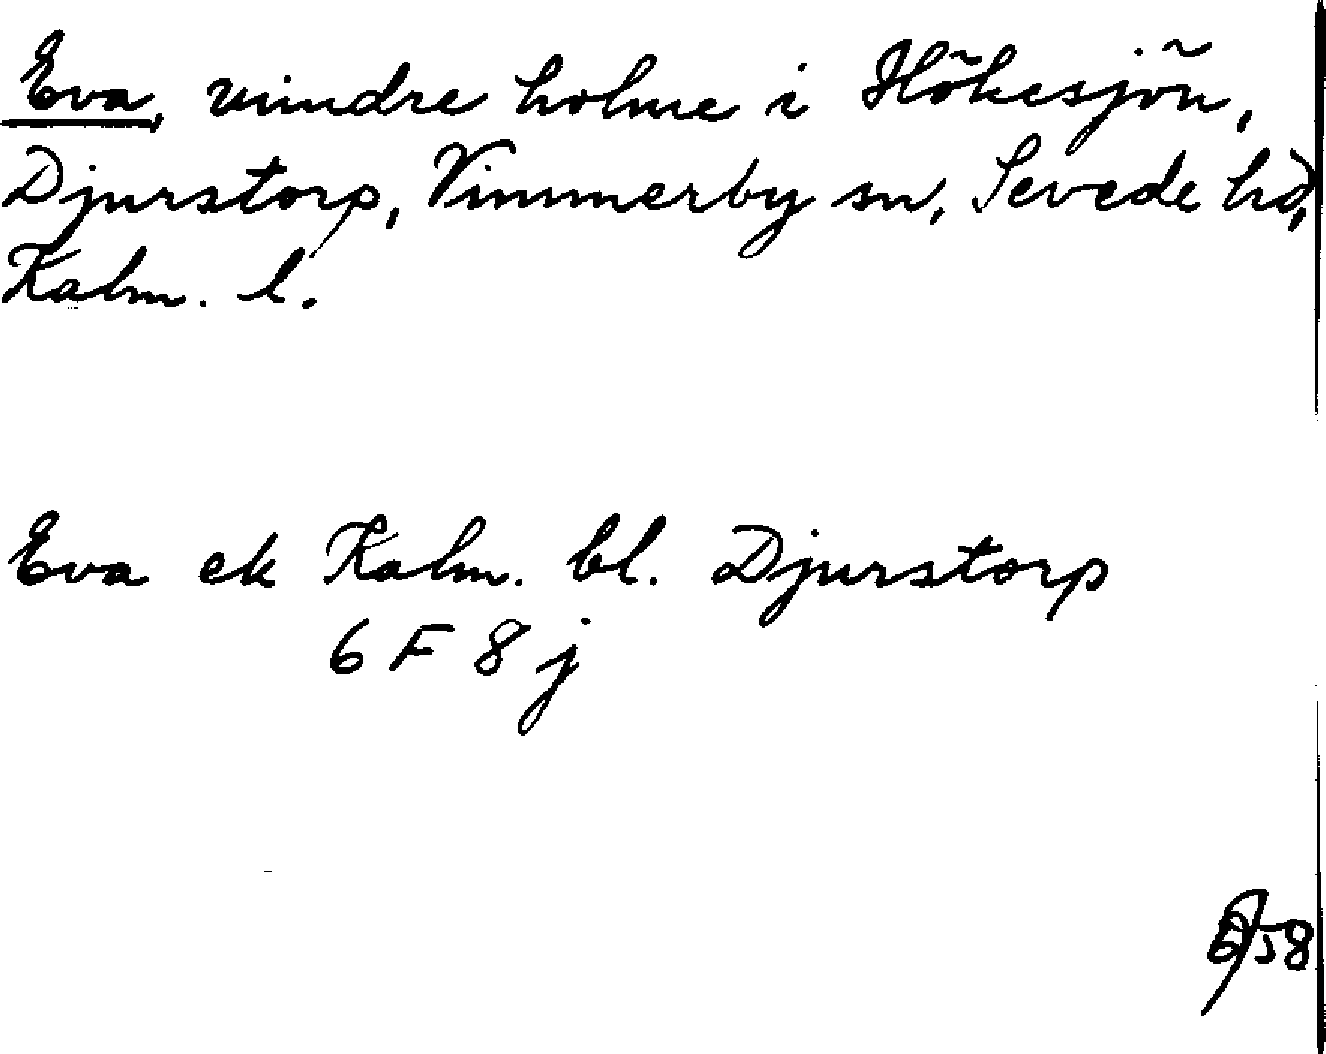 Eva, mindre holme i Hökesjön,
Djurstorp, Vimmerby sn, Sevede hd,
Kalm. l.
Eva ek Kalm. bl. Djurstorp
6 F 8 j
58